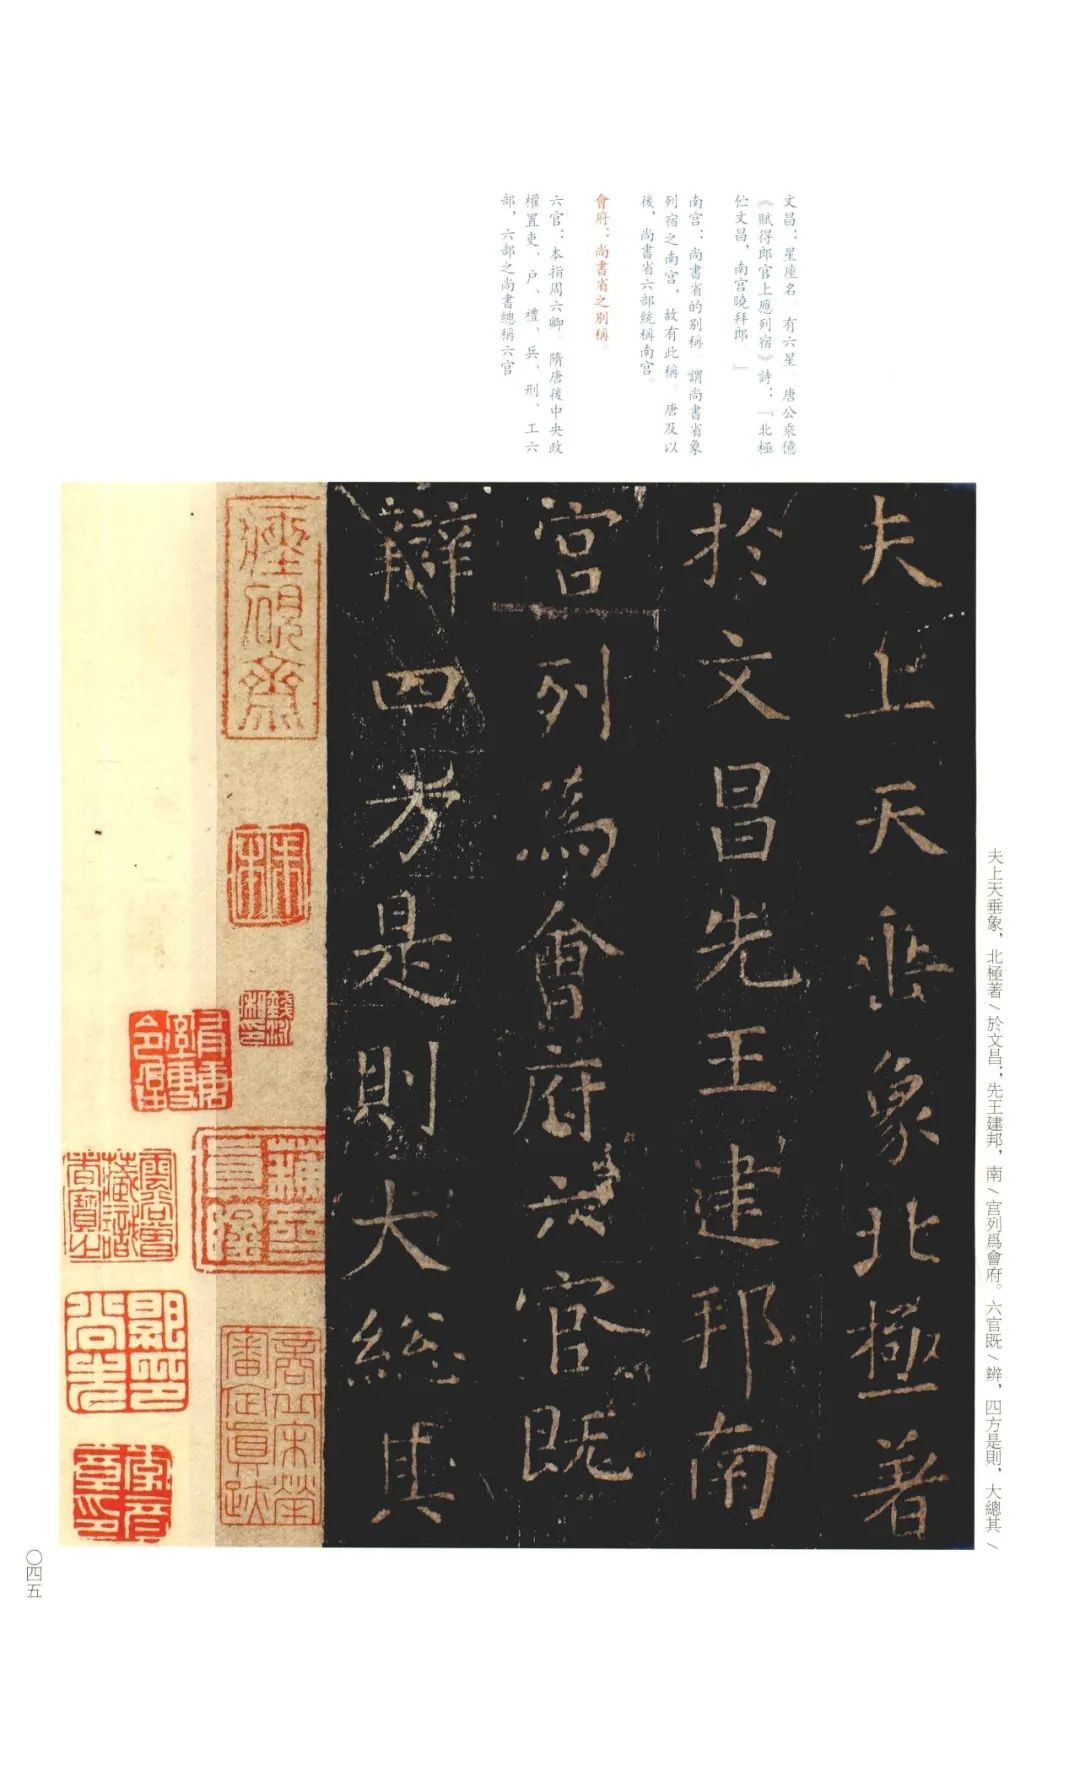 文昌：星座名。有六星。唐公乘億
《賦得郎官上應列宿》詩：「北極
伫文昌，南宫曉拜郎。」
南宫：尚書省的别稱。謂尚書省象
列宿之南宫，故有此稱。唐及以
後，尚書省六部統稱南宫。
會府：尚書省之别稱。
六官：本指周六卿。隋唐後中央政
權置吏、户、禮、兵、刑、工六
部，六部之尚書總稱六官
夫上天垂象北極著
於文昌先王建邦南
宮列為會府六官既
辯四方是則大総其
夫上天垂象，北極著/於文昌；先王建邦，南/宫列爲會府。六官既/辨，四方是則，大總其/
研齋
無
真賞
審定真跡
〇四五